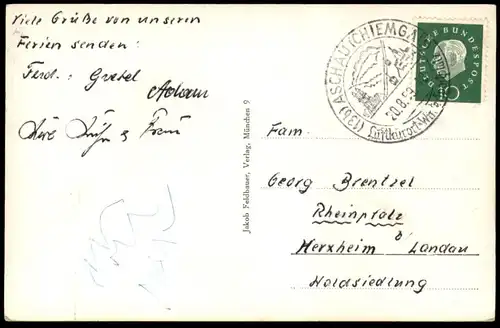 Viele Grüße von unseren
Ferien senden:
Ferd. : Gretel
Adam
Frau
Jakob Feldbauer, Verlag, München 9
(13b) ASCHAU (CHIEMGAU)
20.8.59
Luftkurort
DEUTSCHE BUNDESPOST
10
Fam.
Georg Brentzel
Rheinpfalz
Herxheim b/ Landau
Holdsiedlung